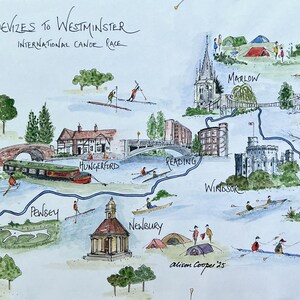 EVIZES TO WESTMINSTER
INTERNATIONAL CANOE RACE
MARLOW
HUNGERFORD
READING
WINDSOR
PEWSEY
NEWBURY
Alison Cooper '25